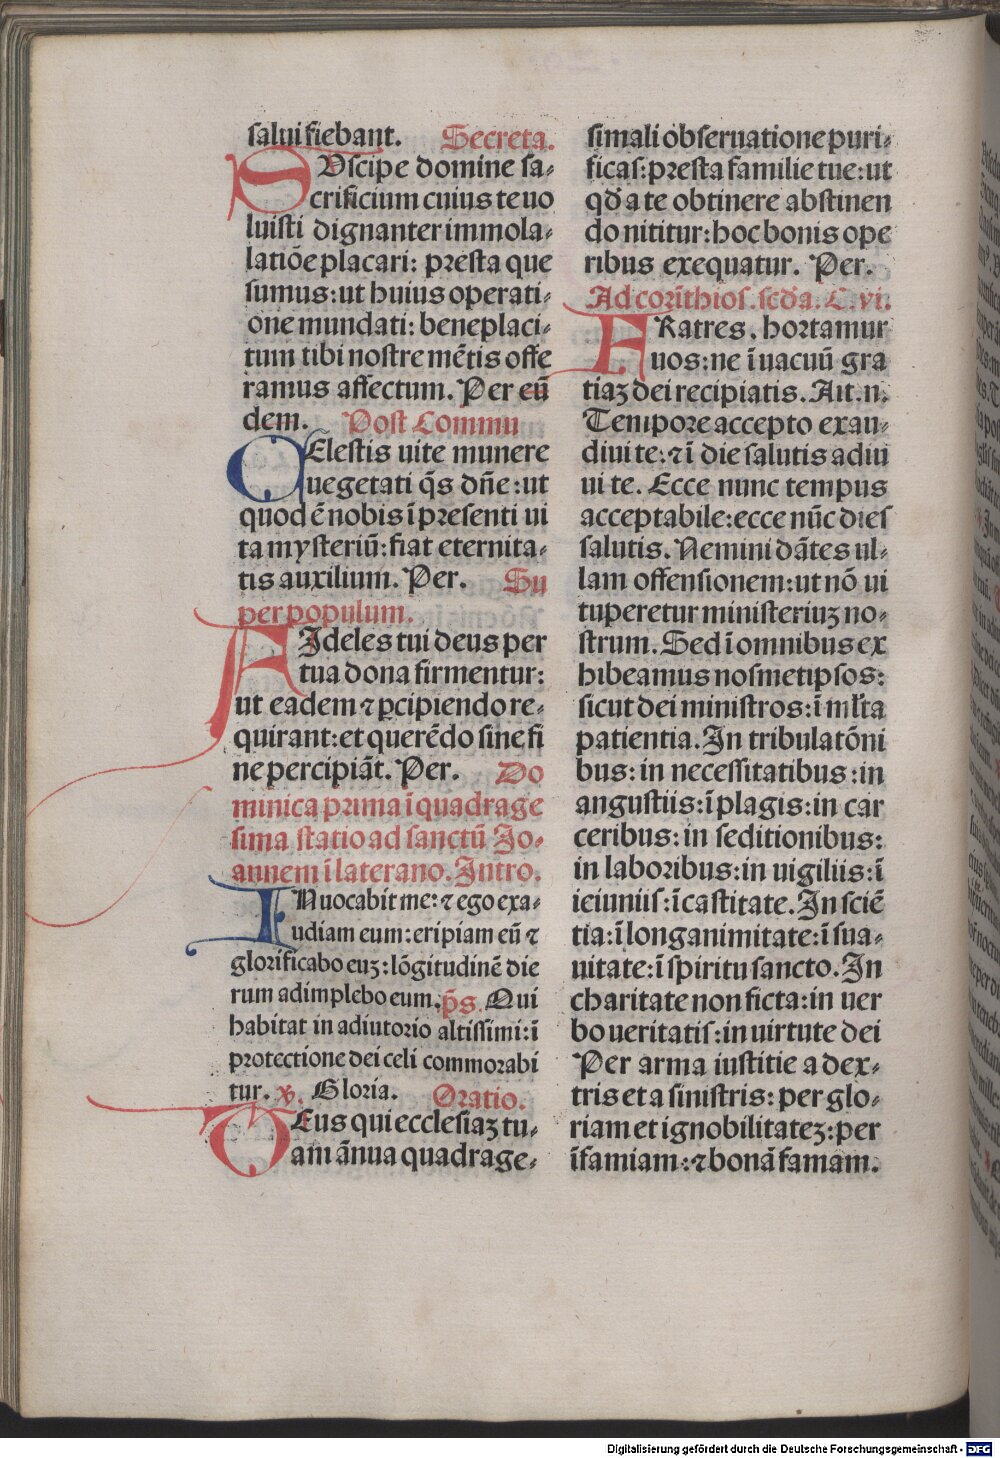 salui fiebant. Secreta.
SVscipe domine sa-
crificium cuius te uo
luisti dignanter immola-
latiōe placari: presta que
sumus: ut huius operati-
one mundati: beneplaci-
tum tibi nostre mētis offe
ramus affectum. Per eū
dem. Post Commu
CElestis uite munere
uegetati q̄s dn̄e: ut
quod ē nobis ī presenti ui
ta mysteriū: fiat eternita-
tis auxilium. Per. Su
per populum.
FIdeles tui deus per
tua dona firmentur:
ut eadem ⁊ ꝑcipiendo re-
quirant: et querēdo sine fi
ne percipiāt. Per. Do
minica prima ī quadrage
sima statio ad sanctū Io-
annem ī laterano. Intro.
INuocabit me: ⁊ ego exa-
udiam eum: eripiam eū ⁊
glorificabo euꝫ: lōgitudinē die
rum adimplebo eum. p̄s. Qui
habitat in adiutorio altissimi: ī
protectione dei celi commorabi
tur. ℣. Gloria. Oratio.
DEus qui ecclesiaꝫ tu-
am ānua quadrage-
simali obseruatione puri-
ficas: presta familie tue: ut
qd̄ a te obtinere abstinen
do nititur: hoc bonis ope
ribus exequatur. Per.
Ad corīthios. scd̄a. C. vi.
FRatres. hortamur
uos: ne ī uacuū gra
tiaꝫ dei recipiatis. Ait .n.
Tempore accepto exau-
diui te: ⁊ ī die salutis adiu
ui te. Ecce nunc tempus
acceptabile: ecce nūc dies
salutis. Nemini dātes ul-
lam offensionem: ut nō ui
tuperetur ministeriuꝫ no-
strum. Sed ī omnibus ex
hibeamus nosmetipsos:
sicut dei ministros: ī ml̄ta
patientia. In tribulatōni
bus: in necessitatibus: in
angustiis: ī plagis: in car
ceribus: in seditionibus:
in laboribus: in uigiliis: ī
ieiuniis: ī castitate. In sciē
tia: ī longanimitate: ī sua-
uitate: ī spiritu sancto. In
charitate non ficta: in uer
bo ueritatis: in uirtute dei
Per arma iustitie a dex-
tris et a sinistris: per glo-
riam et ignobilitateꝫ: per
īfamiam: ⁊ bonā famam.
Digitalisierung gefördert durch die Deutsche Forschungsgemeinschaft - DFG